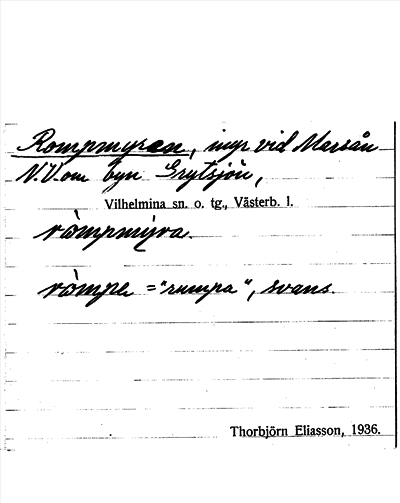 Rompmyran, myr vid Marsån
N.V. om byn Grytsjön,
Vilhelmina sn. o. tg., Västerb. l.
ròmpmỳra.
ròmpe = "rumpa", svans.
Thorbjörn Eliasson, 1936.